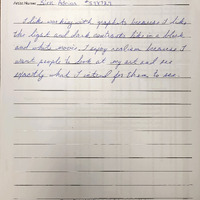 Artist Name: Alex
I like working with graphite because I like
the light and dark contrasts like in a black
and white movie. I enjoy realism because I
want people to look at my art and see
exactly what I intend for them to see.